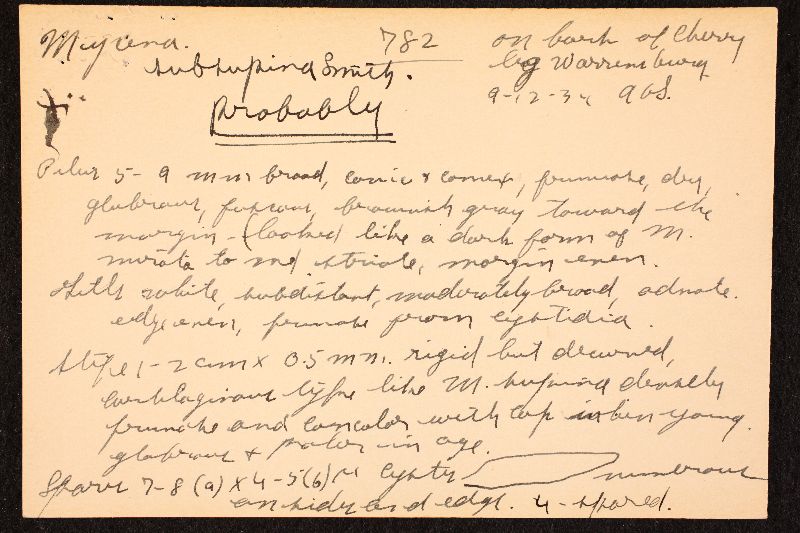 Mycena. 782 on bark of Cherry
subsupina Smith. log Warrensburg
Probably 9-12-34 AHS.
Pileus 5-9 mm broad, conic & convex, pruinose, dry,
glabrous, fuscous, brownish gray toward the
margin - (looked like a dark form of M.
murata to me) striate, margin even.
Gills white, subdistant, moderately broad, adnate.
edge even, pruinose from cystidia.
Stipe 1-2 cm x 0.5 mm. rigid but decurved,
cartilaginous type like M. supina densely
pruinose and concolor with cap when young.
glabrous & paler in age.
Spores 7-8 (9) x 4-5 (6) µ cysts numerous
on sides and edge. 4-spored.